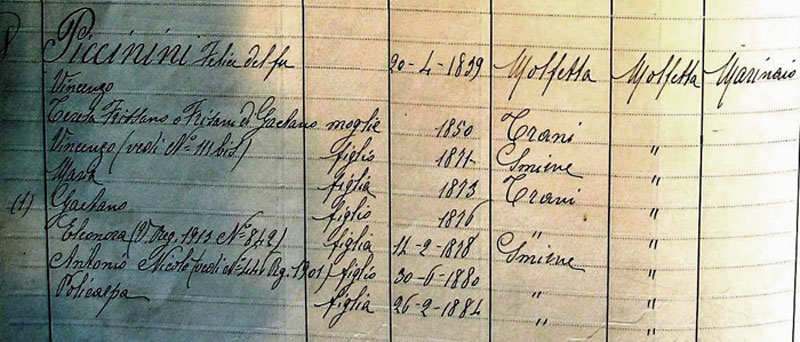 Piccinini Felice del fu 20-4-1839 Molfetta Molfetta Marinaio
Vincenzo
Teresa Frossano o Frisani di Gaetano moglie 1850 Trani "
Vincenzo (vedi No 111 bis) figlio 1871 Smirne "
Maria figlia 1873 Trani "
(1) Gaetano figlio 1876 " "
Eleonora (V. Reg. 1913 No 842) figlia 12-2-1878 Smirne "
Antonio Nicola (vedi No 446 Rg. 1901) figlio 30-6-1880 " "
Policarpa figlia 26-2-1884 " "